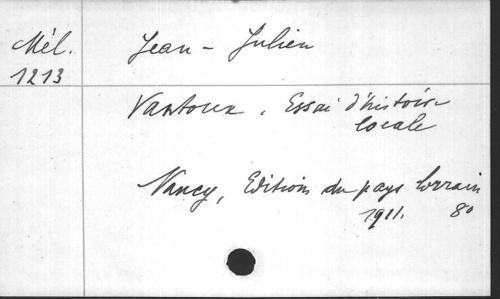 Mél.
1213
Jean - Julien
Vantoux. Essai d'histoire
locale
Nancy, Editions du pays lorrain
1911. 8o